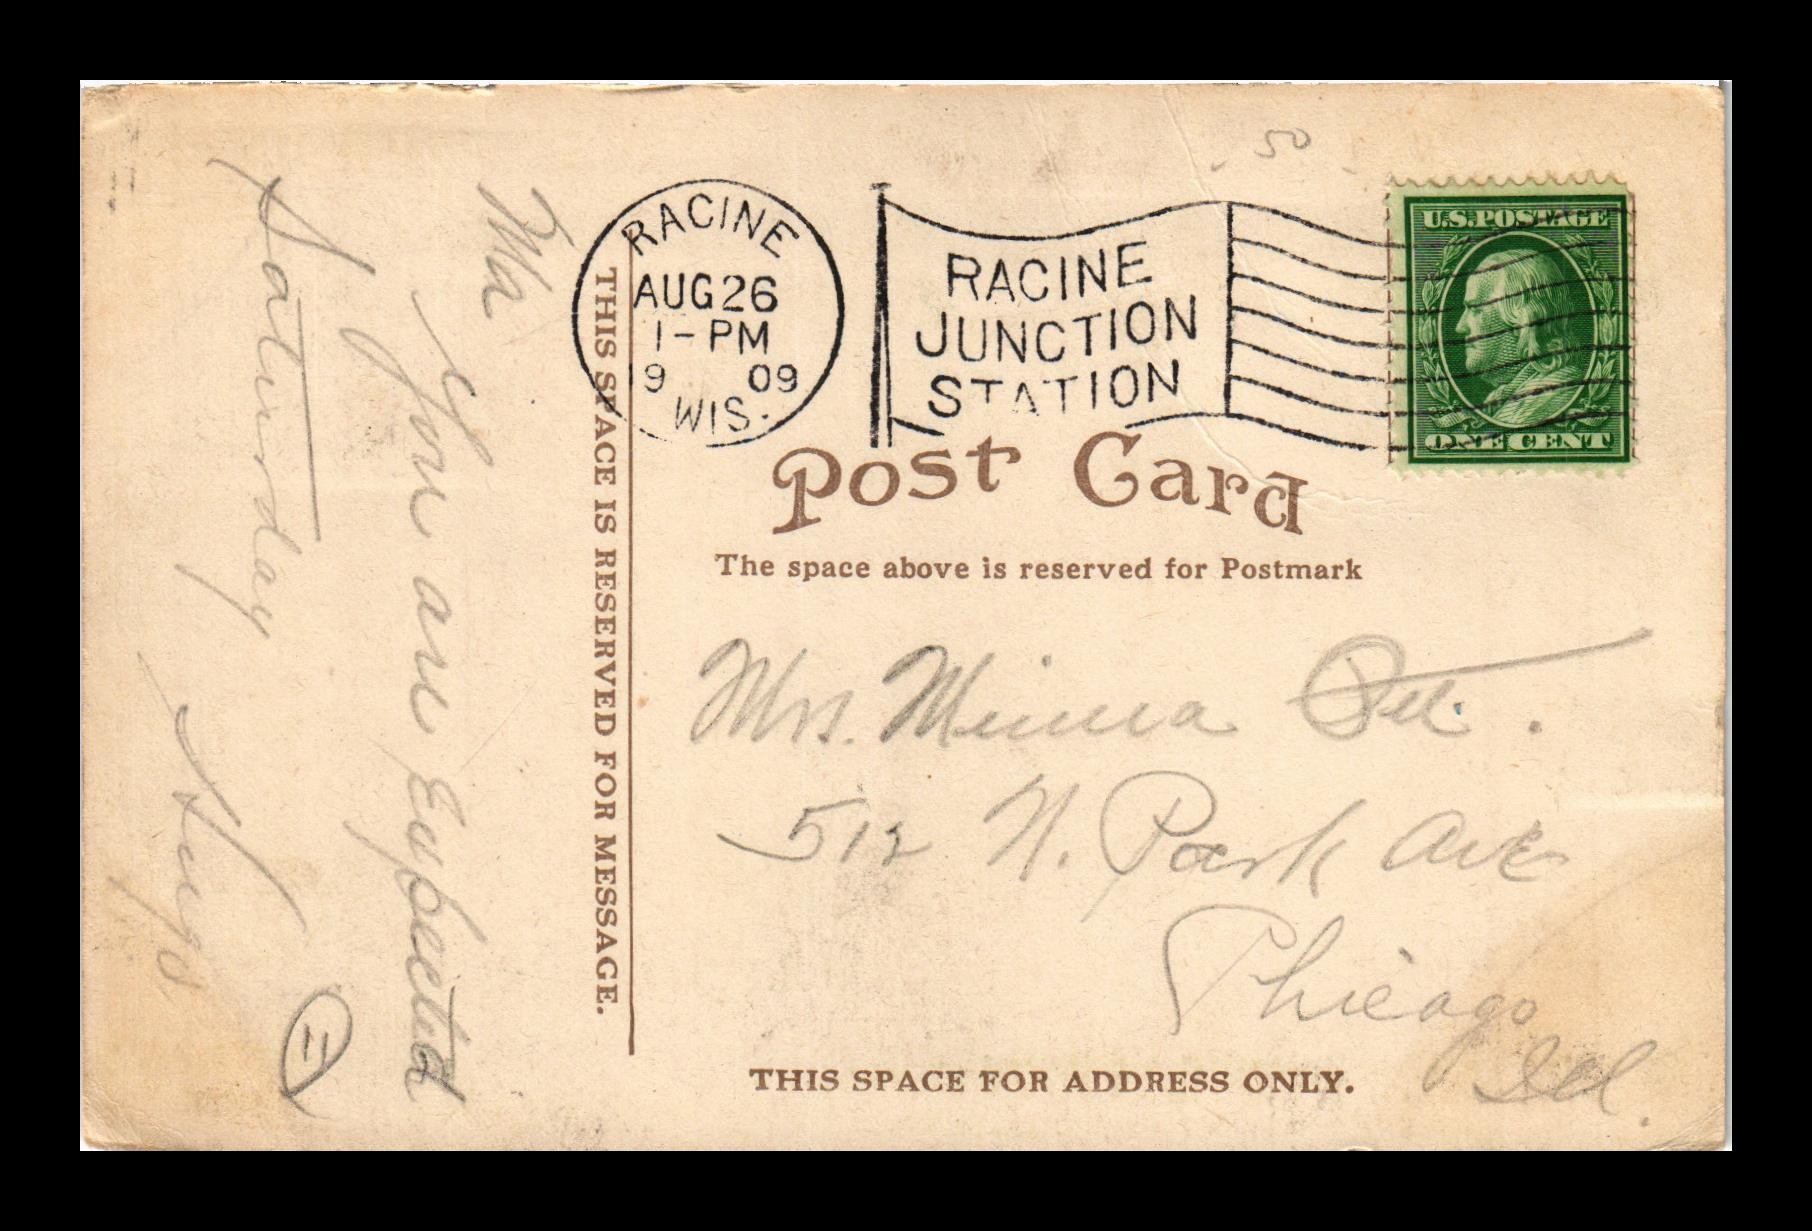 50
RACINE
AUG 26
1-PM
9 09
WIS.
RACINE
JUNCTION
STATION
U.S. POSTAGE
ONE CENT
Post Card
The space above is reserved for Postmark
THIS SPACE IS RESERVED FOR MESSAGE.
Ma
You are Expected
Saturday
Hugo
Mrs. Minna
512 N. Park Ave
Chicago
Ill.
THIS SPACE FOR ADDRESS ONLY.